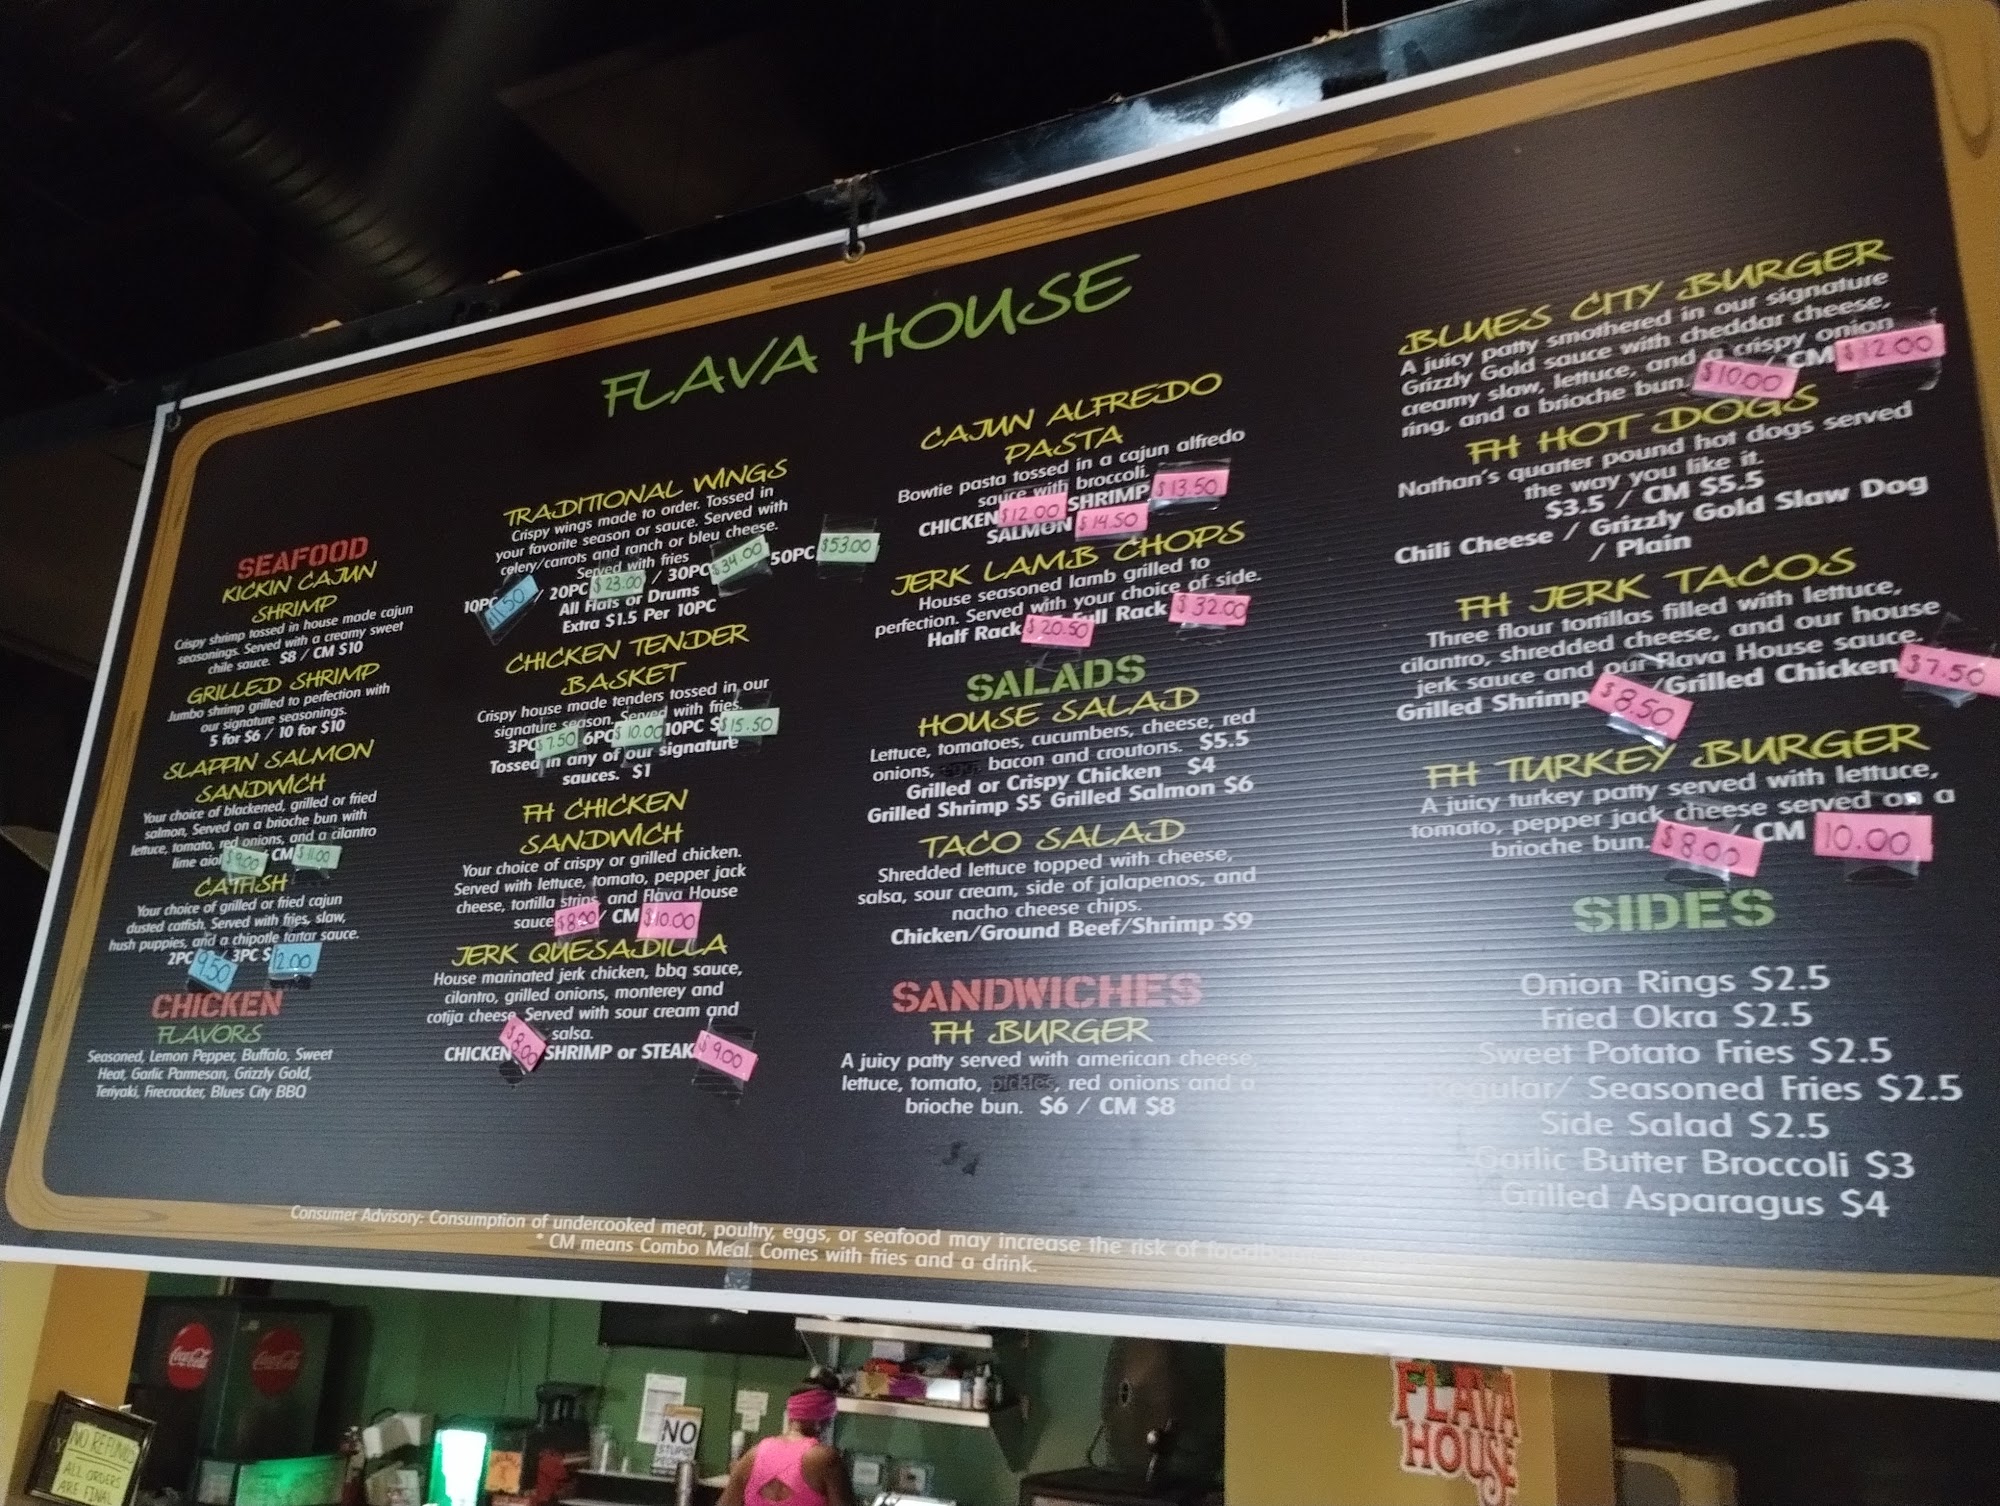 FLAVA HOUSE
SEAFOOD
KICKIN CAJUN
SHRIMP
Crispy shrimp tossed in house made cajun
seasonings. Served with a creamy sweet
chile sauce. $8 / CM $10
GRILLED SHRIMP
Jumbo shrimp grilled to perfection with
our signature seasonings.
5 for $6 / 10 for $10
SLAPPIN SALMON
SANDWICH
Your choice of blackened, grilled or fried
salmon, Served on a brioche bun with
lettuce, tomato, red onions, and a cilantro
lime aioli $9.00 CM $11.00
CATFISH
Your choice of grilled or fried cajun
dusted catfish. Served with fries, slaw,
hush puppies, and a chipotle tartar sauce.
2PC 9.50 / 3PC $12.00
CHICKEN
FLAVORS
Seasoned, Lemon Pepper, Buffalo, Sweet
Heat, Garlic Parmesan, Grizzly Gold,
Teriyaki, Firecracker, Blues City BBQ
TRADITIONAL WINGS
Crispy wings made to order. Tossed in
your favorite season or sauce. Served with
celery/carrots and ranch or bleu cheese.
Served with fries
10PC $11.50 / 20PC $23.00 / 30PC $34.00 50PC $53.00
All Flats or Drums
Extra $1.5 Per 10PC
CHICKEN TENDER
BASKET
Crispy house made tenders tossed in our
signature season. Served with fries.
3PC $7.50 6PC $10.00 10PC $15.50
Tossed in any of our signature
sauces. $1
FH CHICKEN
SANDWICH
Your choice of crispy or grilled chicken.
Served with lettuce, tomato, pepper jack
cheese, tortilla strips, and Flava House
sauce $8.00 / CM $10.00
JERK QUESADILLA
House marinated jerk chicken, bbq sauce,
cilantro, grilled onions, monterey and
cotija cheese. Served with sour cream and
salsa.
CHICKEN $8.00 SHRIMP or STEAK $9.00
CAJUN ALFREDO
PASTA
Bowtie pasta tossed in a cajun alfredo
sauce with broccoli.
CHICKEN $12.00 SHRIMP $13.50
SALMON $14.50
JERK LAMB CHOPS
House seasoned lamb grilled to
perfection. Served with your choice of side.
Half Rack $20.50 Full Rack $32.00
SALADS
HOUSE SALAD
Lettuce, tomatoes, cucumbers, cheese, red
onions, bacon and croutons. $5.5
Grilled or Crispy Chicken $4
Grilled Shrimp $5 Grilled Salmon $6
TACO SALAD
Shredded lettuce topped with cheese,
salsa, sour cream, side of jalapenos, and
nacho cheese chips.
Chicken/Ground Beef/Shrimp $9
SANDWICHES
FH BURGER
A juicy patty served with american cheese,
lettuce, tomato, pickles, red onions and a
brioche bun. $6 / CM $8
BLUES CITY BURGER
A juicy patty smothered in our signature
Grizzly Gold sauce with cheddar cheese,
creamy slaw, lettuce, and a crispy onion
ring, and a brioche bun. $10.00 / CM $12.00
FH HOT DOGS
Nathan's quarter pound hot dogs served
the way you like it.
$3.5 / CM $5.5
Chili Cheese / Grizzly Gold Slaw Dog
/ Plain
FH JERK TACOS
Three flour tortillas filled with lettuce,
cilantro, shredded cheese, and our house
jerk sauce and our Flava House sauce.
Grilled Shrimp $8.50 /Grilled Chicken $7.50
FH TURKEY BURGER
A juicy turkey patty served with lettuce,
tomato, pepper jack cheese served on a
brioche bun. $8.00 / CM 10.00
SIDES
Onion Rings $2.5
Fried Okra $2.5
Sweet Potato Fries $2.5
Regular/ Seasoned Fries $2.5
Side Salad $2.5
Garlic Butter Broccoli $3
Grilled Asparagus $4
Consumer Advisory: Consumption of undercooked meat, poultry, eggs, or seafood may increase the risk of
* CM means Combo Meal. Comes with fries and a drink.
Coca-Cola
Coca-Cola
NO REFUNDS
ALL ORDERS
ARE FINAL
NO
STUPID
PEOPLE
FLAVA
HOUSE